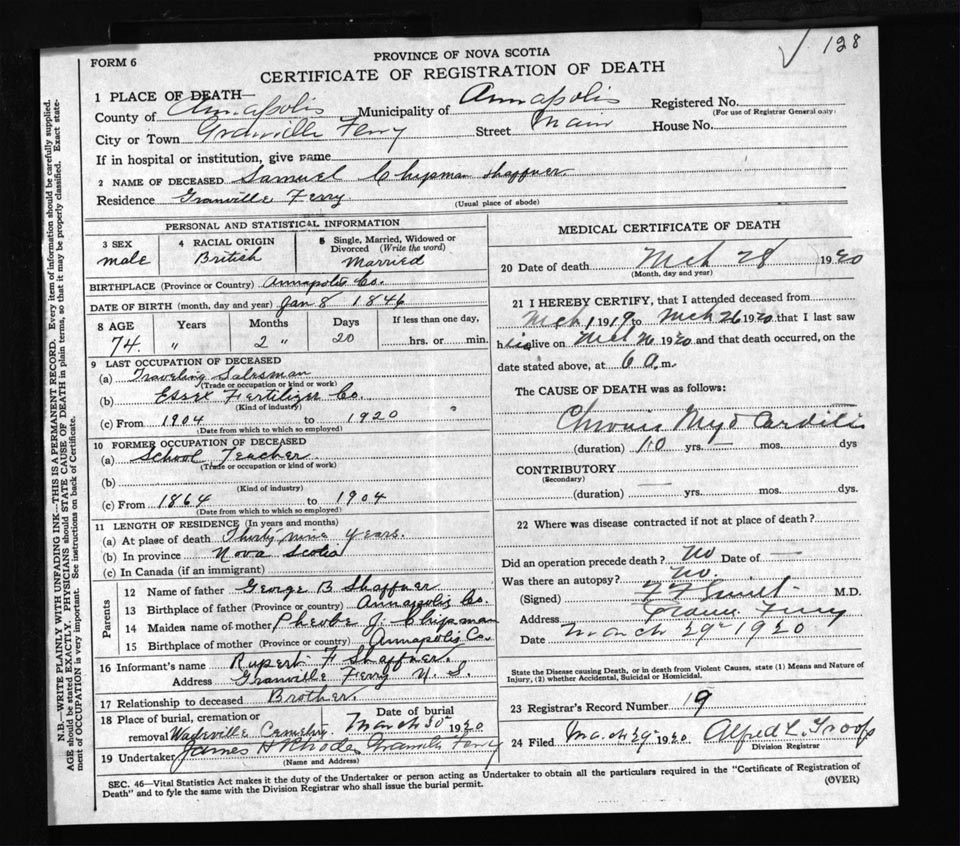 128
PROVINCE OF NOVA SCOTIA
FORM 6
CERTIFICATE OF REGISTRATION OF DEATH
1 PLACE OF DEATH—
County of Annapolis Municipality of Annapolis Registered No.
(For use of Registrar General only.)
City or Town Granville Ferry Street Main House No.
If in hospital or institution, give name
2 NAME OF DECEASED Samuel Chipman Shaffner
Residence Granville Ferry.
(Usual place of abode)
N.B.—WRITE PLAINLY WITH UNFADING INK—THIS IS A PERMANENT RECORD. Every item of information should be carefully supplied.
AGE should be stated EXACTLY. PHYSICIANS should STATE CAUSE OF DEATH in plain terms, so that it may be properly classified. Exact state-
ment of OCCUPATION is very important. See instructions on back of Certificate.
PERSONAL AND STATISTICAL INFORMATION
3 SEX
male
4 RACIAL ORIGIN
British
5 Single, Married, Widowed or
Divorced (Write the word)
Married
BIRTHPLACE (Province or Country) Annapolis Co.
DATE OF BIRTH (month, day and year) Jan 8 1846
8 AGE Years Months Days If less than one day,
74. " 2 " 20 hrs. or min.
9 LAST OCCUPATION OF DECEASED
(a) Traveling Salesman
(Trade or occupation or kind or work)
(b) Essex Fertilizer Co.
(Kind of industry)
(c) From 1904 to 1920
(Date from which to which so employed)
10 FORMER OCCUPATION OF DECEASED
(a) School Teacher
(Trade or occupation or kind of work)
(b)
(Kind of industry)
(c) From 1864 to 1904
(Date from which to which so employed)
11 LENGTH OF RESIDENCE (In years and months)
(a) At place of death Thirty nine years.
(b) In province Nova Scotia
(c) In Canada (if an immigrant)
Parents
12 Name of father George B Shaffner
13 Birthplace of father (Province or country) Annapolis Co.
14 Maiden name of mother Pheobe J. Chipman
15 Birthplace of mother (Province or country) Annapolis Co.
16 Informant's name Rupert F. Shaffner.
Address Granville Ferry N. S.
17 Relationship to deceased Brother.
18 Place of burial, cremation or
removal Cemetery. Date of burial March 30th 1920
19 Undertaker James H Rhodes Granville Ferry
(Name and Address)
MEDICAL CERTIFICATE OF DEATH
20 Date of death Mch 28 1920
(Month, day and year)
21 I HEREBY CERTIFY, that I attended deceased from
Mch 1 1919 to Mch 26 1920 that I last saw
him alive on Mch 26 1920 and that death occurred, on the
date stated above, at 6 a.m.
The CAUSE OF DEATH was as follows:
Chronic Myo Carditis
(duration) 10 yrs. — mos. dys
CONTRIBUTORY —
(Secondary)
(duration) — yrs. mos. dys.
22 Where was disease contracted if not at place of death?
Did an operation precede death? no Date of —
Was there an autopsy? no.
(Signed) M.D.
Address Granv. Ferry
Date March 29th 1920
State the Disease causing Death, or in death from Violent Causes, state (1) Means and Nature of
Injury, (2) whether Accidental, Suicidal or Homicidal.
23 Registrar's Record Number 19
24 Filed March 29th 1920 Alfred L. Troop
Division Registrar
SEC. 46—Vital Statistics Act makes it the duty of the Undertaker or person acting as Undertaker to obtain all the particulars required in the "Certificate of Registration of
Death" and to fyle the same with the Division Registrar who shall issue the burial permit.
(OVER)